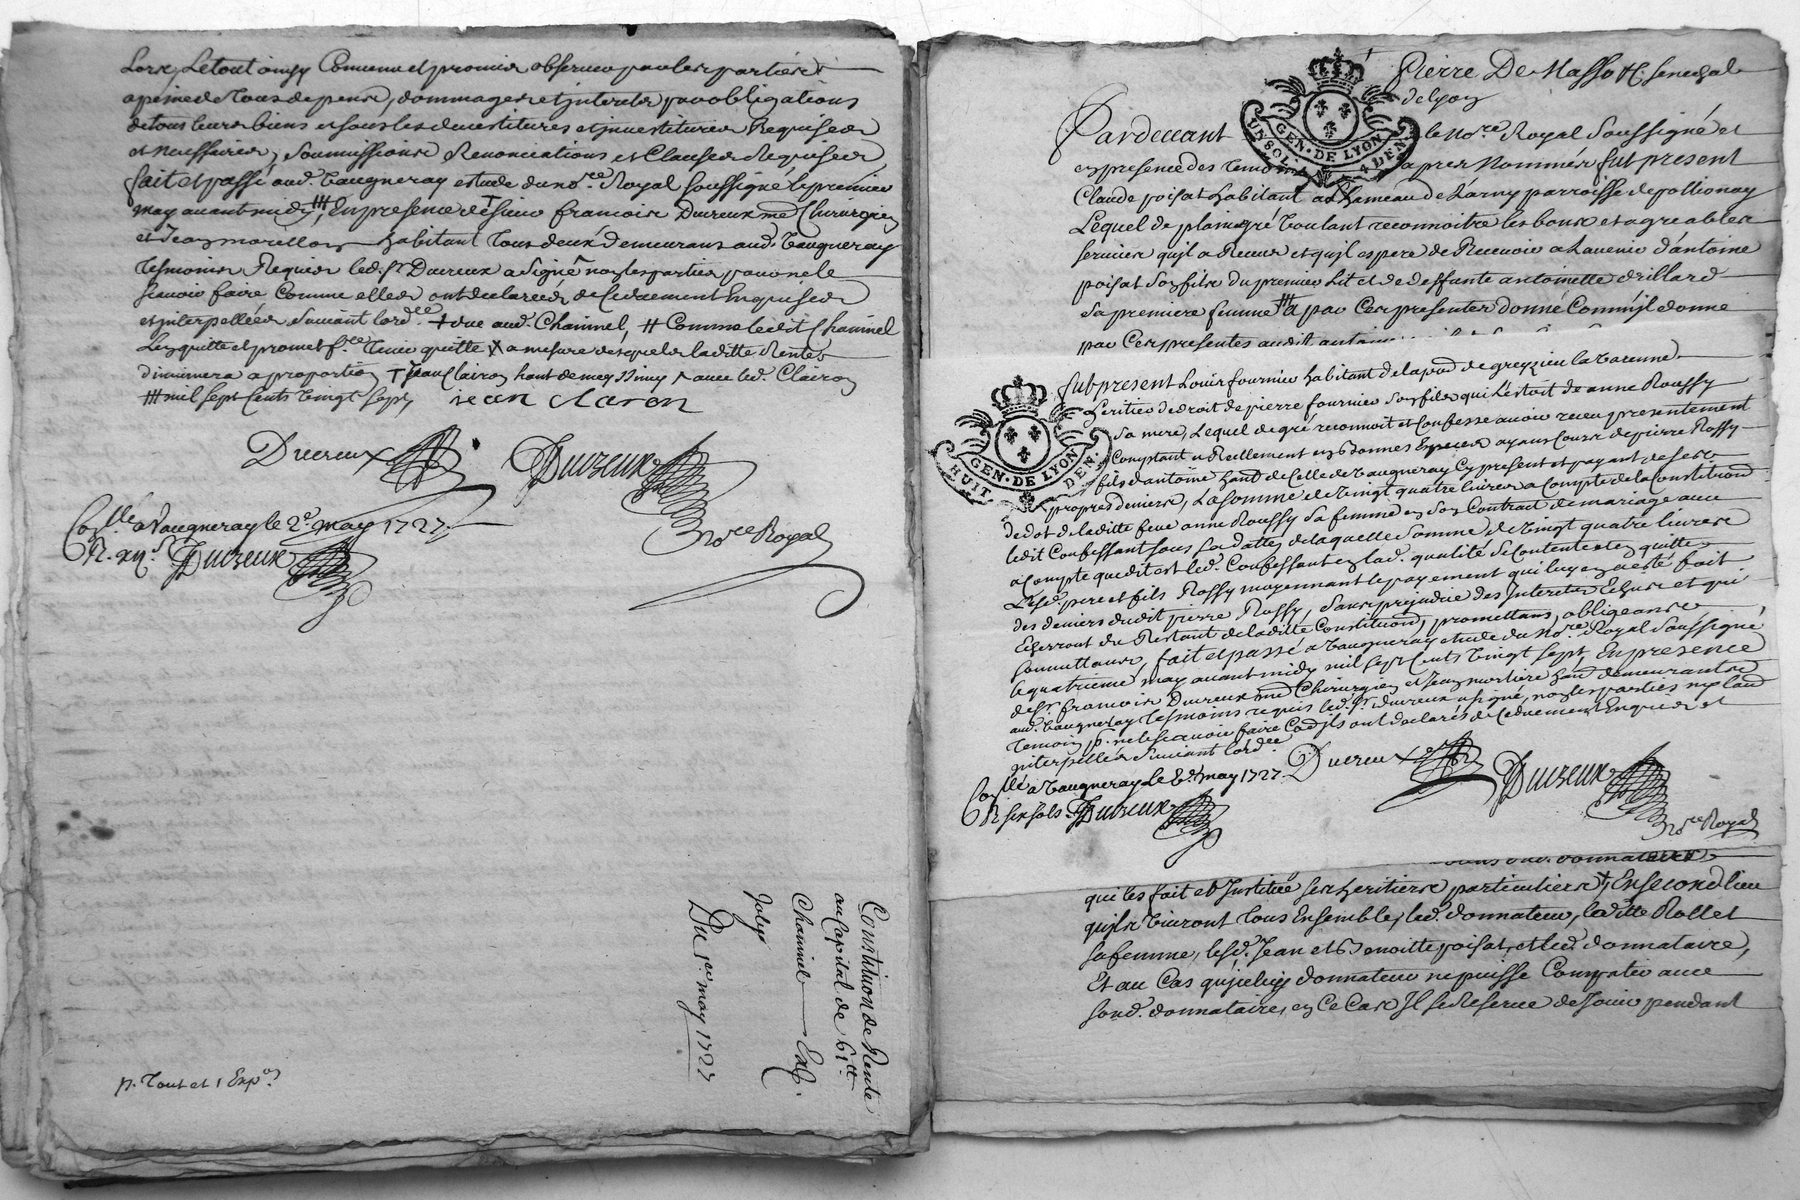 Lors, Le tout ainsy Convenu et promis observer par les parties
a peine de tous depens, dommages et interets par obligations
de tous leurs biens et sous les devestitures et investitures Requises
et necessaires, soumissions Renonciations et Clauses Requises,
fait et passé aud. Vaugneray estude du no.re Royal soussigné le premier
may avant midy ++++, En presence de Sieur francois Ducreux me Chirurgien
et Jean morellon habitant tous deux demeurans aud. Vaugneray
tesmoins Requis led. Sr Ducreux a signé non les parties pour ne le
scavoir faire Comme elles ont declarées de ce duement Enquises
et interpellées suivant lord.ce + due aud. Chainnel, # Comme ledit Chainnel
Len quitte et promet f.e tenir quitte X a mesure desquels laditte Rente
diminuera a proportion T Jean Clairon avec led. Clairon
++++ mil sept Cents vingt sept, jean claron
Ducreux Ducreux
no.re Royal
Con.llé a Vaugneray le 2e may 1727
R. Ducreux
Constitution de Rente
au Capital de 61 tt
Chainnel
Jolys
Du 1er may 1727
p. tout et 1 Exp.on
Pierre De Masso C. senechal
de lyon
Pardevant le no.re Royal soussigné et
en presence des temoins apres Nommés fut present
Claude poisat habitant au hameau de Larny parroisse de pollionay
Lequel de plain gré voulant reconnoitre les bons et agreables
services qu'il a Receu et qu'il espere de Recevoir a Lavenir d'antoine
poisat son fils du premier Lit et de deffunte antoinette drillard
sa premiere femme a par Ces presentes donné Comme il donne
par Ces presentes audit antoine
UN SOL GEN. DE LYON 4 DEN
fut present Louis fournier habitant de la par. de grezieu la Varenne
heritier de droit de pierre fournier son fils qui L'estoit de anne Roussy
sa mere, Lequel de gré reconnoit et Confesse avoir receu presentement
Comptant et Reellement en bonnes Especes ayans Cours de pierre Rossy
fils d'antoine hant de Celle de Vaugneray Cy present et payant de ses
propres deniers, La somme de vingt quatre livres a Compte de la Constitution
de dot de laditte feue anne Roussy sa femme en son Contract de mariage avec
ledit Confessant sous sa datte, de laquelle somme de vingt quatre livres
a Compte que dit est led. Confessant en lad. qualité se Contente et en quitte
Lesd. pere et fils Rossy moyennant le payement qui luy en a esté fait
des deniers dudit pierre Rossy, sans prejudice des Interets Echus et qui
Echerront du Restant de laditte Constitution, promettans, obligeans
soumettans, fait et passé a Vaugneray estude du no.re Royal soussigné
le quatrieme may avant midy mil sept Cents vingt sept, En presence
de Sr. francois Ducreux me Chirurgien et Jean mortiere hant demeurants
aud. Vaugneray tesmoins requis led. Sr. Ducreux a signé, non les parties ny laud
temoin p. ne le scavoir faire Cad ils ont declarés de Ce duement Enquis et
interpellés suivant lord.ce
HUIT DEN. GEN. DE LYON
Ducreux Ducreux
no.re Royal
Con.llé a Vaugneray le 6e may 1727
R six sols Ducreux
qui les fait et Institué ses heritiers particuliers +, En second lieu
qu'ils vivront tous Ensemble, led. donnateur, laditte Rollet
sa femme, lesd. Jean et Benoitte poisat, et led. donnataire,
Et au Cas qu'iceluy donnateur ne puisse Compatir avec
sond. donnataire, en Ce Cas Il se Reserve de Jouir pendant